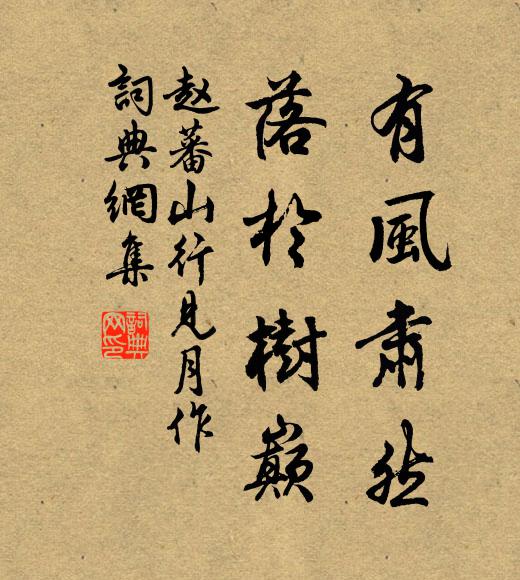 有風肅然
落於樹巔
赵蕃山行見月作
詞典網集
詞典網印